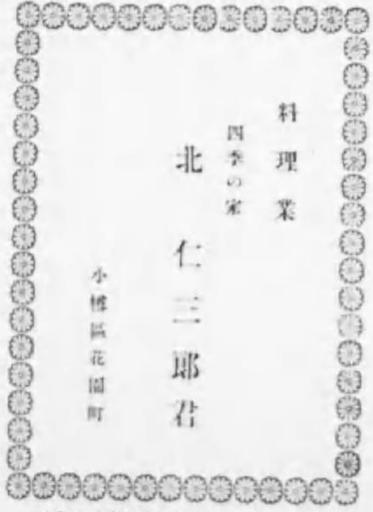 料理業
四季の家
北仁三郎君
小樽區花園町